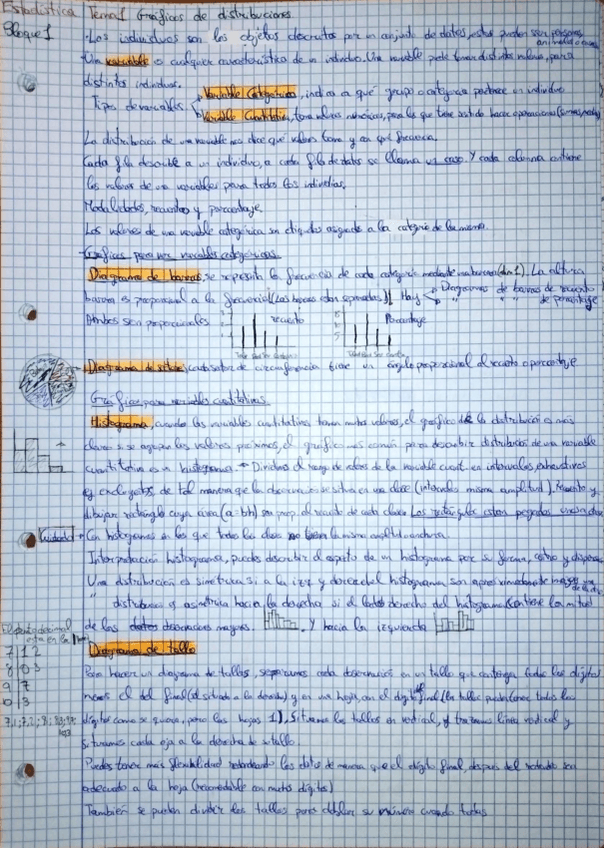 Estadística Tema 1 Gráficos de distribuciones
Bloque 1
· Los individuos son los objetos descritos por un conjunto de datos, estos pueden ser personas, animales o cosas
Una variable es cualquier característica de un individuo. Una variable puede tomar distintos valores, para
distintos individuos.
Tipos de variables
Variable Categórica, indica a qué grupo o categoría pertenece un individuo
Variable Cuantitativa, toma valores numéricos, para los que tiene sentido hacer operaciones
La distribución de una variable nos dice qué valores toma y con qué frecuencia.
Cada fila describe a un individuo, a cada fila de datos se llama un caso. Y cada columna contiene
los valores de una variable para todos los individuos.
Modalidades, recuentos y porcentaje
Los valores de una variable categórica son etiquetas asignadas a la categoría de la misma.
Gráficos para var variables categóricas.
Diagrama de barras, se representa la frecuencia de cada categoría mediante una barra. La altura
barra es proporcional a la frecuencia (Las barras van separadas) Hay
Diagramas de barras de recuento
" " " de porcentaje
Ambos son proporcionales
recuento
Porcentaje
Diagrama de sectores, cada sector de circunferencia tiene un ángulo proporcional al recuento o porcentaje
Gráficos para variables cuantitativas
Histograma, cuando las variables cuantitativas toman muchos valores, el gráfico de la distribución es más
claro si se agrupan los valores próximos, el gráfico más común para describir distribución de una variable
cuantitativa es un histograma → Divides el rango de valores de la variable cuant. en intervalos exhaustivos
y excluyentes de tal manera que la observación se situa en una clase (intervalos misma amplitud), Recuento y
dibujar rectángulo cuya área (a=b·h) sea prop. al recuento de cada clase. Los rectángulos están pegados
Cuidado → Con histogramas en los que todas las clases no tienen la misma amplitud
Interpretación histograma, puedes describir el aspecto de un histograma por su forma, centro y dispersión
Una distribución es simétrica si a la izq y derecha del histograma son aproximadamente
" distribución es asimétrica hacia la derecha si el lado derecho del histograma contiene la mitad
de las datos observaciones mayores. Y hacia la izquierda
Diagrama de tallo
El punto decimal
está en la
7|1 2
8|0 3
9|7
10|3
Para hacer un diagrama de tallos, separamos cada observación en un tallo que contenga todos los dígitos
menos el del final (el situado a la derecha) y en una hoja, con el dígito final (Los tallos pueden tener todos los
dígitos como se quiera, pero las hojas 1). Situamos los tallos en vertical, y trazamos línea vertical y
situamos cada oja a la derecha de su tallo.
Puedes tener más flexibilidad redondeando los datos de manera que el dígito final, después del redondeo sea
adecuado a la hoja (recomendable con muchos dígitos)
También se pueden dividir los tallos para doblar su número cuando todas